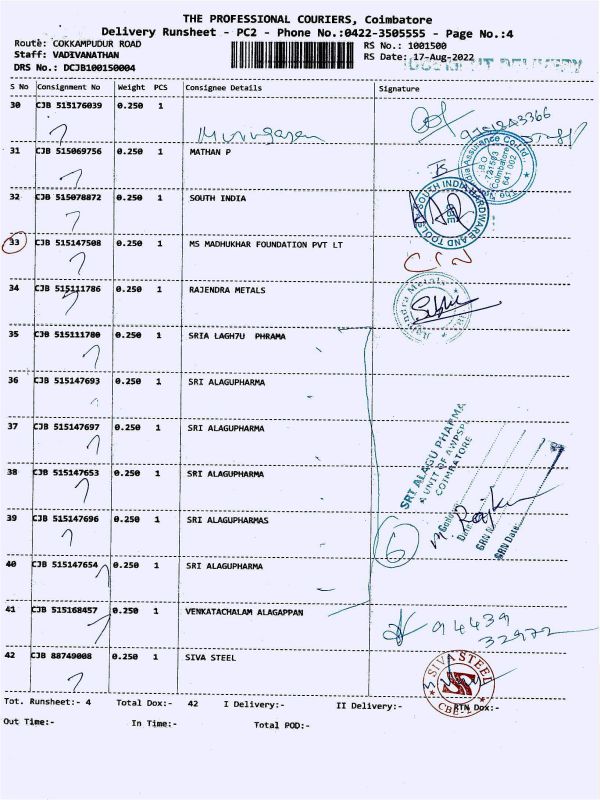 THE PROFESSIONAL COURIERS, Coimbatore
Delivery Runsheet - PC2 - Phone No.:0422-3505555 - Page No.:4
Route: COKKAMPUDUR ROAD
RS No.: 1001500
Staff: VADIVANATHAN
RS Date: 17-Aug-2022
DRS No.: DCJB100150004
S No Consignment No Weight PCS Consignee Details Signature
30 CJB 515176039 0.250 1
Murugesan
9751843366
31 CJB 515069756 0.250 1 MATHAN P
B.O
721503
Coimbatore
641 002
32 CJB 515078872 0.250 1 SOUTH INDIA
SOUTH INDIA HARDWARE AND TOOLS
CBE
33 CJB 515147508 0.250 1 MS MADHUKHAR FOUNDATION PVT LT
C/N
34 CJB 515111786 0.250 1 RAJENDRA METALS
Rajendra Metals
35 CJB 515111780 0.250 1 SRIA LAGH7U PHRAMA
36 CJB 515147693 0.250 1 SRI ALAGUPHARMA
37 CJB 515147697 0.250 1 SRI ALAGUPHARMA
38 CJB 515147653 0.250 1 SRI ALAGUPHARMA
39 CJB 515147696 0.250 1 SRI ALAGUPHARMAS
40 CJB 515147654 0.250 1 SRI ALAGUPHARMA
SRI ALAGU PHARMA
A UNIT OF AWPSPL
COIMBATORE
Date
GRN Date
6
41 CJB 515168457 0.250 1 VENKATACHALAM ALAGAPPAN
94439
32972
42 CJB 88749008 0.250 1 SIVA STEEL
SIVA STEEL
CBE-2
Tot. Runsheet:- 4 Total Dox:- 42 I Delivery:- II Delivery:- RTN Dox:-
Out Time:- In Time:- Total POD:-